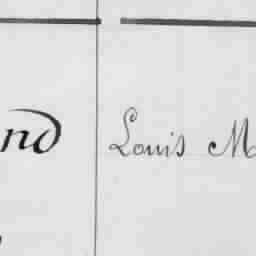 nd Louis M